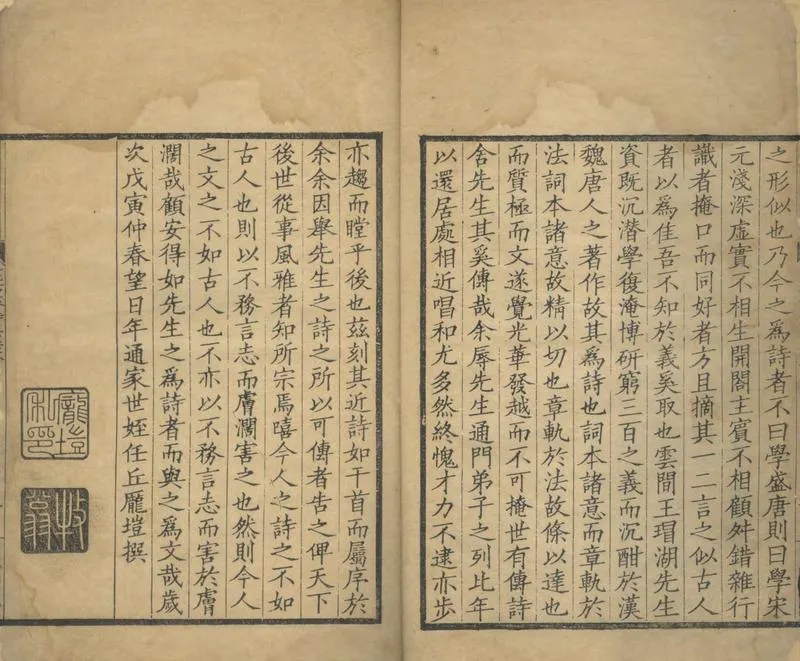 之形似也乃今之為詩者不曰學盛唐則曰學宋
元淺深虛實不相生開闔主賓不相顧舛錯雜行
識者掩口而同好者方且摘其一二言之似古人
者以為佳吾不知於義奚取也雲間王瑁湖先生
資既沉潜學復淹博研窮三百之義而沉酣於漢
魏唐人之著作故其為詩也詞本諸意而章軌於
法詞本諸意故精以切也章軌於法故條以達也
而質極而文遂覺光華發越而不可掩世有傳詩
舍先生其奚傳哉余辱先生通門弟子之列比年
以還居處相近唱和尤多然終愧才力不逮亦步
亦趨而瞠乎後也茲刻其近詩如干首而屬序於
余余因舉先生之詩之所以可傳者告之俾天下
後世從事風雅者知所宗焉嘻今人之詩之不如
古人也則以不務言志而膚濶害之也然則今人
之文之不如古人也不亦以不務言志而害於膚
濶哉顧安得如先生之為詩者而與之為文哉歲
次戊寅仲春望日年通家世姪任丘龐塏撰
龐塏私印
牧翁